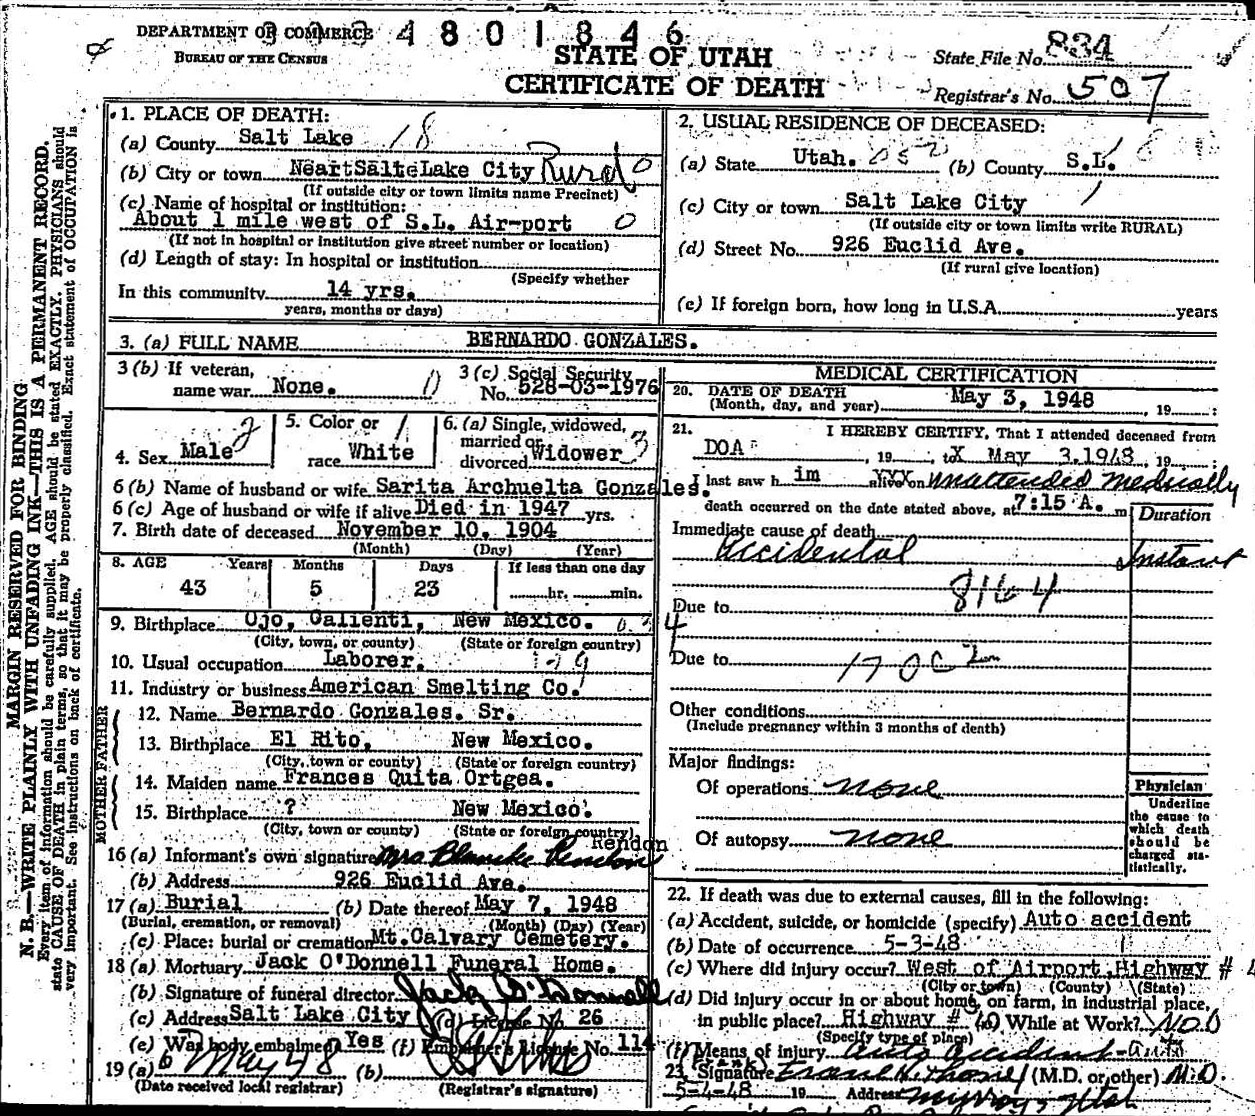 DEPARTMENT OF COMMERCE
BUREAU OF THE CENSUS
4801846
STATE OF UTAH
CERTIFICATE OF DEATH
State File No. 834
Registrar's No. 507
MARGIN RESERVED FOR BINDING
N. B.—WRITE PLAINLY WITH UNFADING INK—THIS IS A PERMANENT RECORD.
Every item of information should be carefully supplied. AGE should be stated EXACTLY. PHYSICIANS should
state CAUSE OF DEATH in plain terms, so that it may be properly classified. Exact statement of OCCUPATION is
very important. See instructions on back of certificate.
1. PLACE OF DEATH:
(a) County Salt Lake 18
(b) City or town Near Salt Lake City Rural 0
(If outside city or town limits name Precinct)
(c) Name of hospital or institution:
About 1 mile west of S.L. Air-port 0
(If not in hospital or institution give street number or location)
(d) Length of stay: In hospital or institution
(Specify whether
In this community 14 yrs.
years, months or days)
2. USUAL RESIDENCE OF DECEASED:
(a) State Utah. (b) County S.L.
(c) City or town Salt Lake City
(If outside city or town limits write RURAL)
(d) Street No. 926 Euclid Ave.
(If rural give location)
(e) If foreign born, how long in U.S.A. years
3. (a) FULL NAME BERNARDO GONZALES.
3 (b) If veteran,
name war None. 0
3 (c) Social Security
No. 528-03-1976
4. Sex Male 2
5. Color or
race White 1
6. (a) Single, widowed,
married or
divorced Widower 3
6 (b) Name of husband or wife Sarita Archuelta Gonzales.
6 (c) Age of husband or wife if alive Died in 1947 yrs.
7. Birth date of deceased November 10, 1904
(Month) (Day) (Year)
8. AGE Years Months Days If less than one day
43 5 23 hr. min.
9. Birthplace Ojo, Calienti, New Mexico.
(City, town, or county) (State or foreign country)
10. Usual occupation Laborer.
11. Industry or business American Smelting Co.
FATHER
12. Name Bernardo Gonzales. Sr.
13. Birthplace El Rito, New Mexico.
(City, town or county) (State or foreign country)
MOTHER
14. Maiden name Frances Quita Ortgea.
15. Birthplace ? New Mexico.
(City, town or county) (State or foreign country)
Rendon
16 (a) Informant's own signature Mrs Blanche Rendon
(b) Address 926 Euclid Ave.
17 (a) Burial (b) Date thereof May 7, 1948
(Burial, cremation, or removal) (Month) (Day) (Year)
(c) Place: burial or cremation Mt. Calvary Cemetery.
18 (a) Mortuary Jack O'Donnell Funeral Home.
(b) Signature of funeral director Jack O'Donnell
(c) Address Salt Lake City (d) License No. 26
(e) Was body embalmed Yes (f) Embalmer's License No. 114
19 (a) 6 May 48 (b)
(Date received local registrar) (Registrar's signature)
MEDICAL CERTIFICATION
20. DATE OF DEATH
(Month, day, and year) May 3, 1948, 19 :
21. I HEREBY CERTIFY, That I attended deceased from
DOA , 19 , to X May 3.1948, 19 ;
I last saw h im alive on XXX unattended medically
death occurred on the date stated above, at 7:15 A. m
Duration
Immediate cause of death
Accidental Instant
Due to 816 4
Due to 170C
Other conditions
(Include pregnancy within 3 months of death)
Major findings:
Of operations none
Of autopsy none
Physician
Underline
the cause to
which death
should be
charged sta-
tistically.
22. If death was due to external causes, fill in the following:
(a) Accident, suicide, or homicide (specify) Auto accident
(b) Date of occurrence 5-3-48
(c) Where did injury occur? West of Airport, Highway # 4
(City or town) (County) (State)
(d) Did injury occur in or about home, on farm, in industrial place,
in public place? Highway # 40 While at Work? No
(Specify type of place)
(f) Means of injury Auto accident - auto
23. Signature (M.D. or other) M.D.
5-4-48 19 Address Murray, Utah